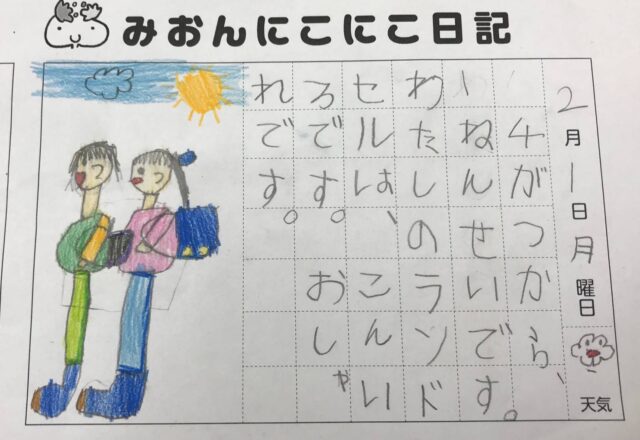 みおんにこにこ日記
2月1日月曜日 天気
4がつから、
1ねんせいです。
わたしのランド
セルは、こんい
ろです。 おしゃ
れです。